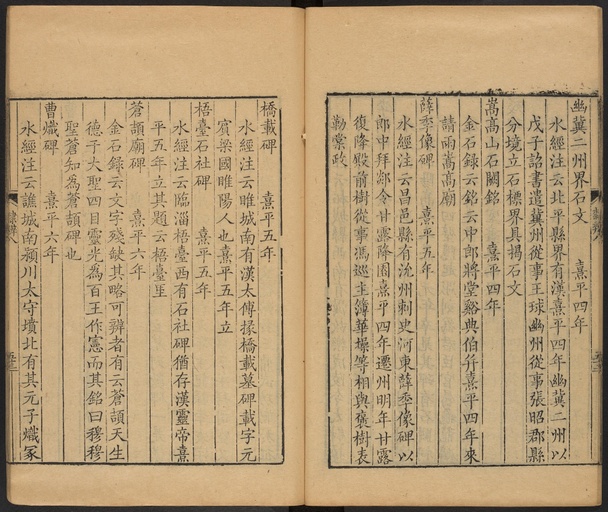 幽冀二州界石文　熹平四年
水經注云北平縣界有漢熹平四年幽冀二州以
戊子詔書遣冀州從事王球幽州從事張昭郡縣
分境立石標界具揭石文
嵩高山石闕銘　熹平四年
金石錄云銘云中郎將堂谿典伯并熹平四年來
請雨嵩高廟
薛季像碑　熹平五年
水經注云昌邑縣有沇州刺史河東薛季像碑以
郎中拜剡令甘露降園熹平四年遷州明年甘露
復降殿前樹從事馮巡主簿華操等相與襃樹表
勒棠政
橋載碑　熹平五年
水經注云睢城南有漢太傅掾橋載墓碑載字元
賓梁國睢陽人也熹平五年立
梧臺石社碑　熹平五年
水經注云臨淄梧臺西有石社碑猶存漢靈帝熹
平五年立其題云梧臺里
蒼頡廟碑　熹平六年
金石錄云文字殘缺其略可辨者有云蒼頡天生
德于大聖四目靈光為百王作憲而其銘曰穆穆
聖蒼知為蒼頡碑也
曹熾碑　熹平六年
水經注云譙城南潁川太守墳北有其元子熾冢